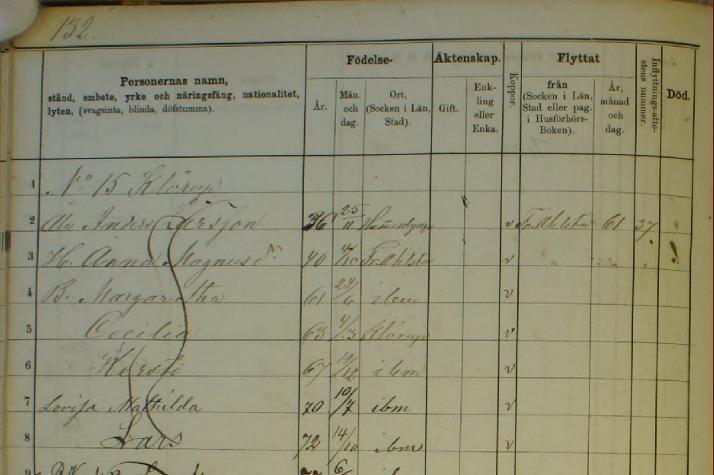 132.
Personernas namn, stånd, embete, yrke och näringsfång, nationalitet, lyten, (svagsinta, blinda, döfstumma).
Födelse-
År.
Mån. och dag.
Ort, (Socken i Län, Stad).
Äktenskap.
Gift.
Enk- ling eller Enka.
Koppor.
Flyttat
från (Socken i Län, Stad eller pag. i Husförhörs- Boken).
År, månad och dag.
Inflyttnings-atte- stens nummer.
Död.
1 No 15 Klörup
2 Åb Anders Persson 36 25/11 v Fr. Ahlstad 61 37
3 H. Anna Magnusdr 40 Fr. Ahlstad v " "
4 B. Margaretha 61 ibm v
5 Cecilia 63 Klörup v
6 Kersti 67 ibm v
7 Lovisa Mathilda 70 10/7 ibm v
8 Lars 72 14/10 ibm v